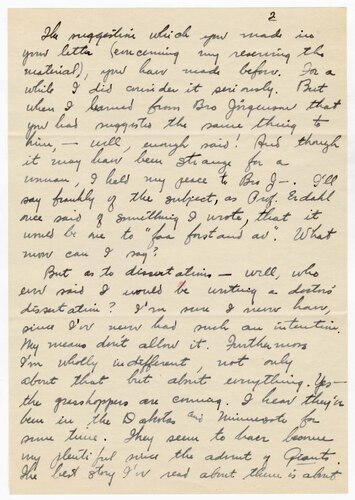 2
The suggestion which you made in
your letter (concerning my reserving the
material), you have made before. For a
while I did consider it seriously. But
when I learned from Bro Jörgenson that
you had suggested the same thing to
him, — well, enough said! And though
it may have been strange for a
woman, I held my peace to Bro J—. I'll
say frankly of the subject, as Prof. Erdahl
once said of something I wrote, that it
would be me to "faa forstand av". What
now can I say?
But as to dissertations — well, who
ever said I would be writing a doctor's
dissertation? I'm sure I never have,
since I've never had such an intention.
My means don't allow it. Furthermore
I'm wholly indifferent, not only
about that but about everything. Yes —
the grasshoppers are coming. I hear they've
been in the Dakotas and Minnesota for
some time. They seem to have become
very plentiful since the advent of Giants.
The best story I've read about them is about